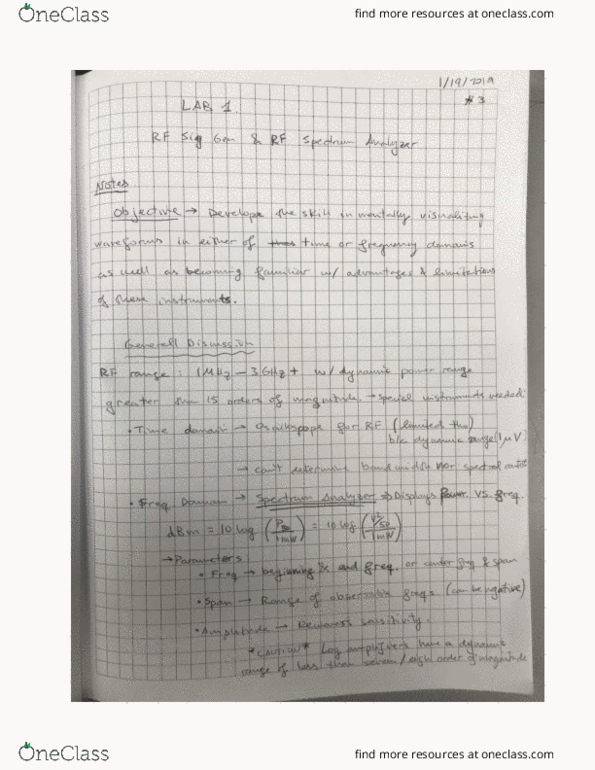 OneClass
find more resources at oneclass.com
1/19/2019
LAB 1.
#3
RF Sig Gen & RF Spectrum Analyzer
Notes
Objective → Develope the skill in mentally visualizing
waveforms in either of time or frequency domains
as well as becoming familiar w/ advantages & limitations
of these instruments.
Generall Discussion
RF range: 1MHz - 3GHz + w/ dynamic power range
greater than 15 orders of magnitude. → special instruments needed:
• Time domain → for RF (limited tho)
b/c dynamic range (1µV)
→ can't determine bandwidth nor spectral
• Freq Domain → Spectrum Analyzer → Displays Power VS. freq.
dBm = 10 log (P/1mW) = 10 log (V²/50/1mW)
→ Parameters:
• Freq → beginning & end freq. or center freq & span
• Span → Range of observable freqs (can be negative)
• Amplitude → sensitivity.
*CAUTION* Log amplifiers have a dynamic
range of less than seven/eight order of magnitude
OneClass
find more resources at oneclass.com